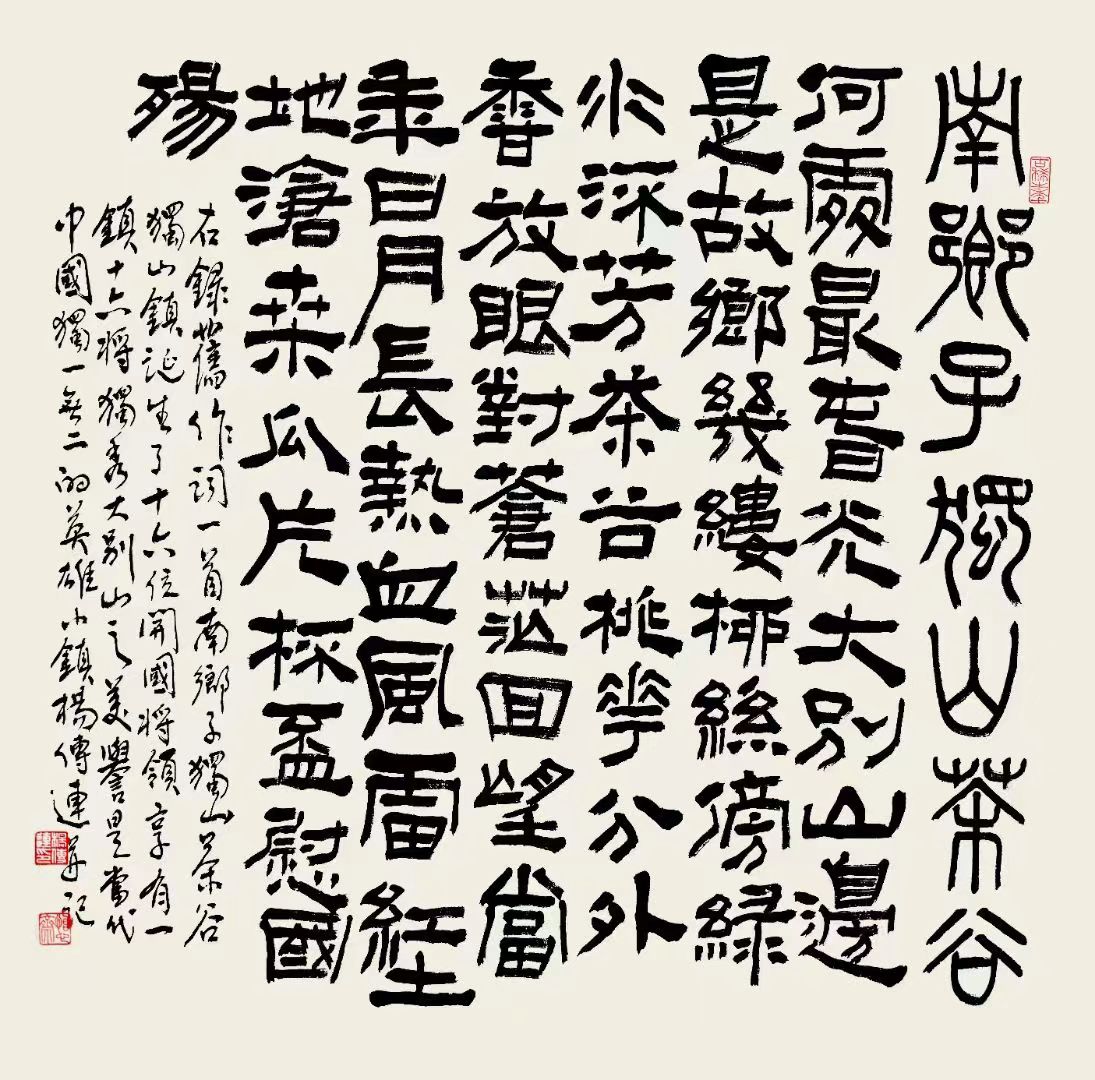 南鄉子獨山茶谷
何處最春光大別山邊
是故鄉幾縷柳絲傍綠
水深芳茶谷桃華分外
香放眼對蒼茫回望當
年日月長熱血風雷紅土
地滄桑瓜片杯盃慰國
殤
右錄舊作詞一首南鄉子獨山茶谷
獨山鎮誕生了十六位開國將領享有一
鎮十六將獨秀大別山之美譽是當代
中國獨一無二的英雄小鎮楊傳連并記